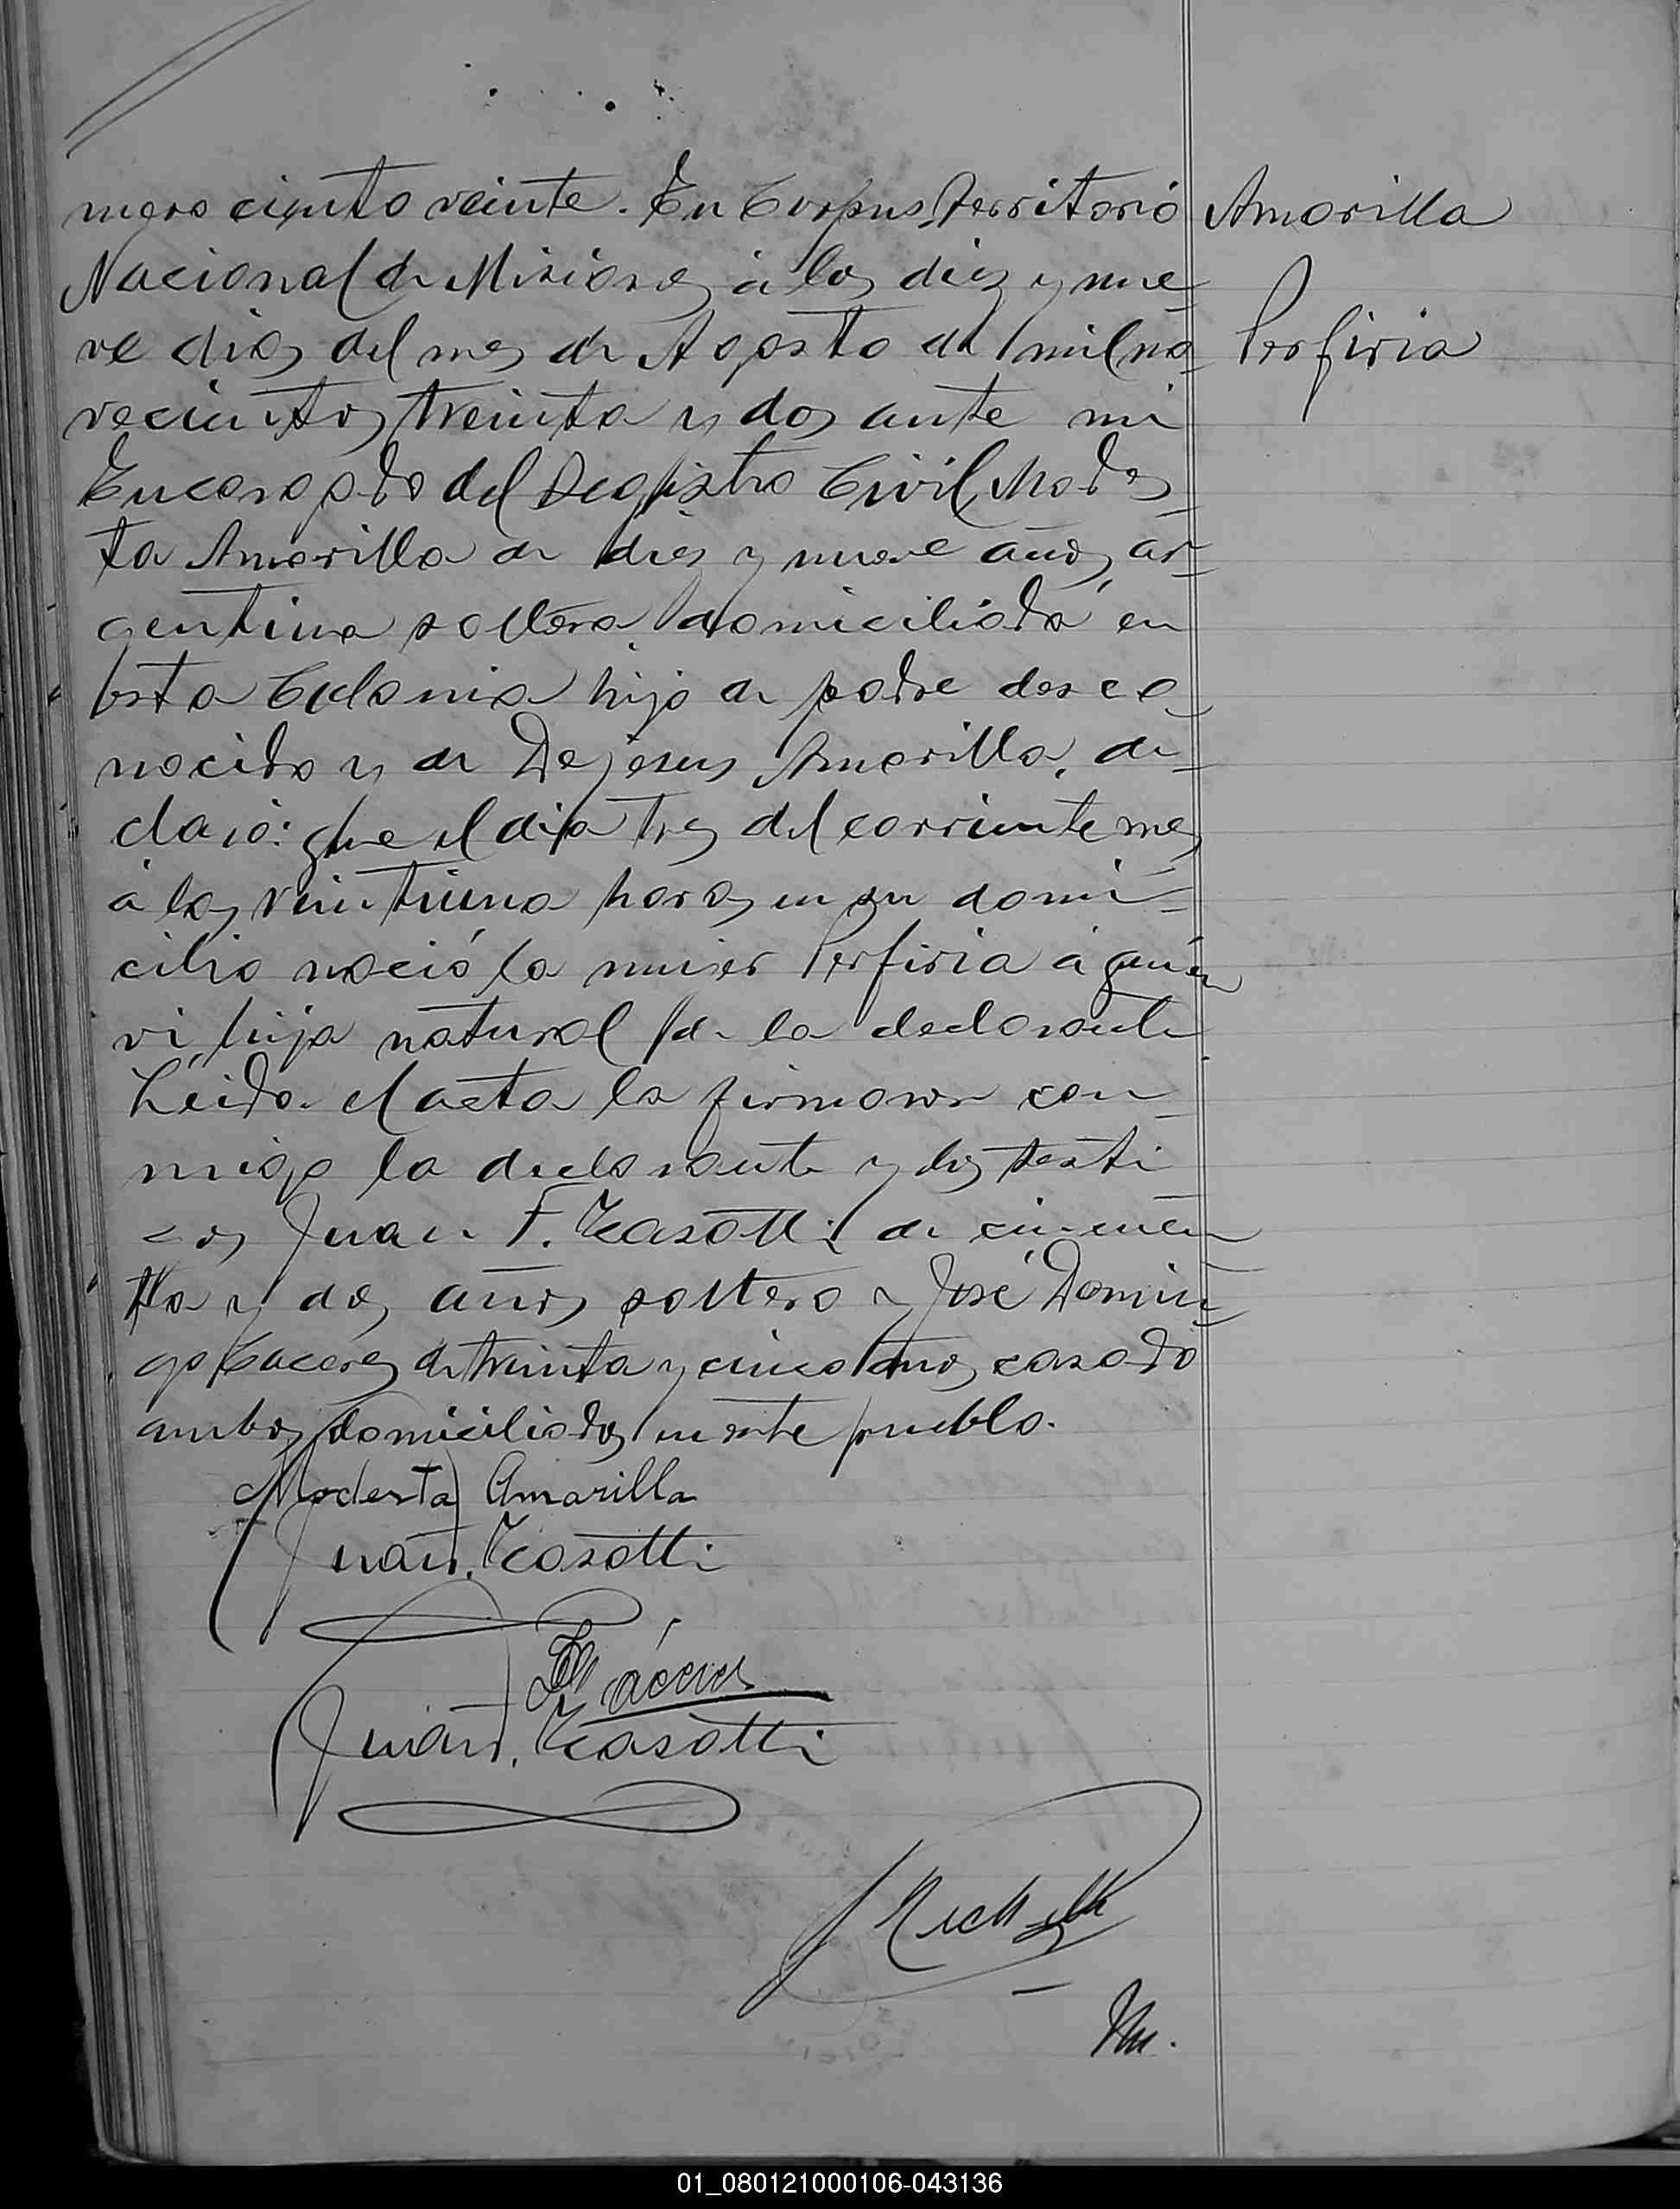 mero ciento veinte. En Corpus, Territorio
Nacional de Misiones, á los diez y nue
ve dias del mes de Agosto de mil no
vecientos treinta y dos ante mi
Encargado del Registro Civil, Modes
ta Amarilla de diez y nueve años, ar
gentina soltera domiciliada en
esta Colonia hija de padre desco
nocido y de Dejesus Amarilla, de
claró: que el dia tres del corriente mes
á las veintiuna horas en su domi
cilio nació la mujer Perfiria á quien
vi, hija natural de la declarante
Léida el acta la firmaron con
migo la declarante y los testi
gos Juan F. Zasotti de cincuen
ta y dos años soltero y José Domin
go Caceres de treinta y cinco años, casado
ambos domiciliados en este pueblo.
Modesta Amarilla
Juan F. Zasotti
Cáceres
Juan F. Zasotti
Amarilla
Perfiria
01_080121000106-043136